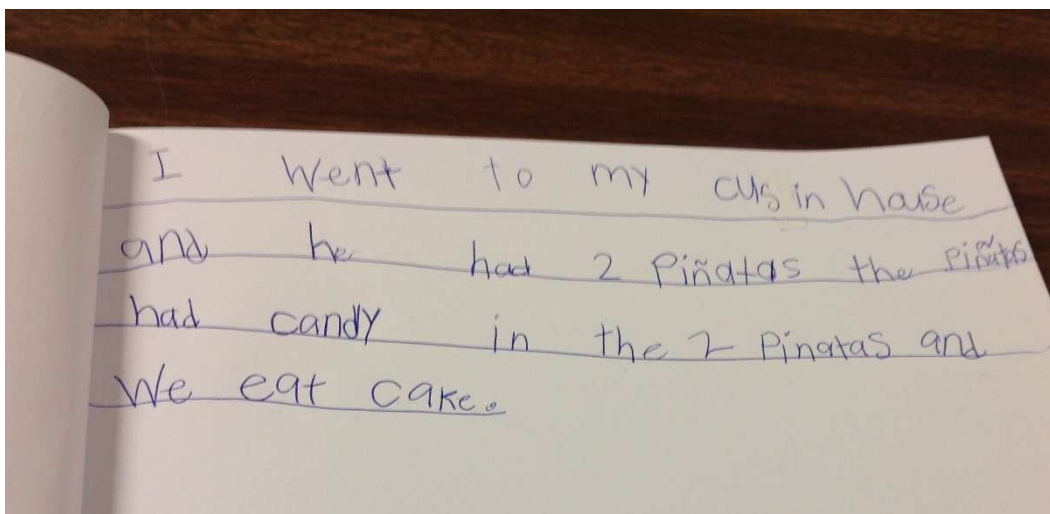 I went to my cusin house
and he had 2 Piñatas the piñatas
had candy in the 2 Pinatas and
We eat cake.